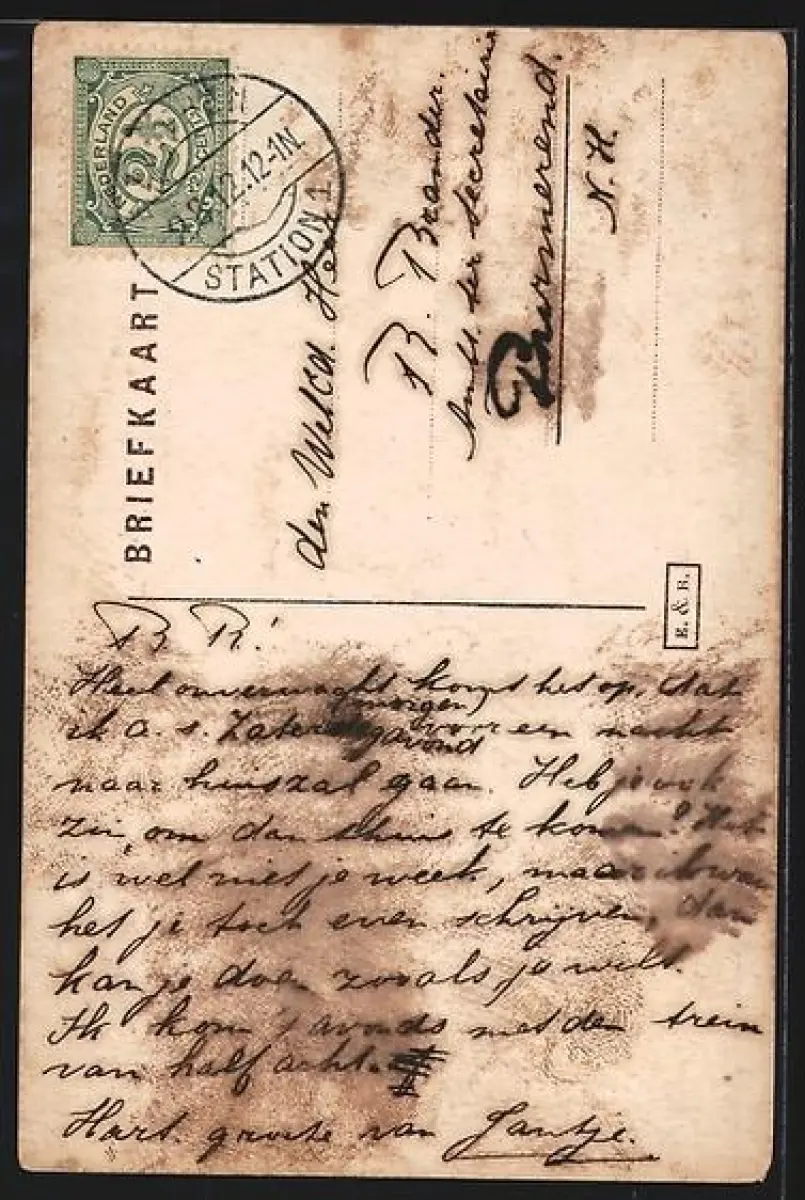 NEDERLAND
2½
CENT
12.12-1N
STATION 1
BRIEFKAART
den Heer
R. Brander
ter secretarie
Purmerend.
N. H.
E. & B.
B R!
Heel onverwacht komt het op, dat
ik a. s. Zaterdag (morgen) avond voor een nacht
naar huis zal gaan. Heb je ook
zin om dan thuis te komen? Het
is wel niet je week, maar ik wou
het je toch even schrijven, dan
kan je doen zooals je wilt.
Ik kom 's avonds met den trein
van half acht.
Hart. groete van Jantje.